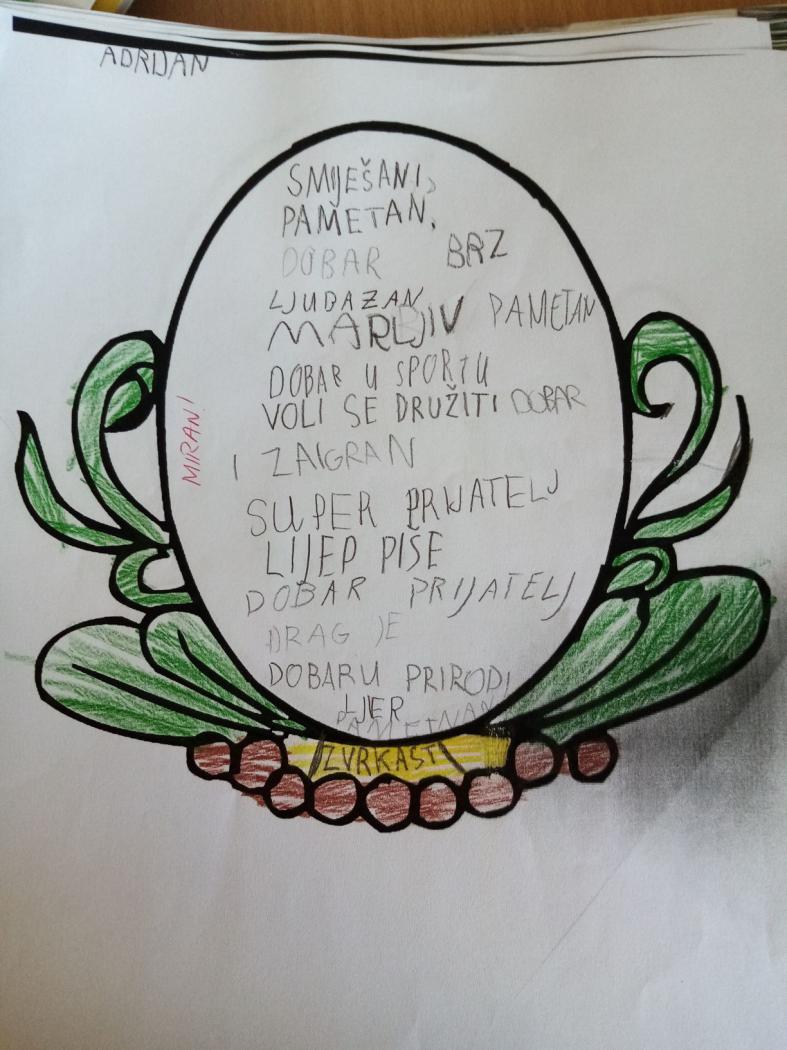 ADRIJAN
SMIJEŠANI,
PAMETAN,
DOBAR BRZ
LJUDAZAN
MARLJIV PAMETAN
DOBAR U SPORTU
VOLI SE DRUŽITI DOBAR
MIRAN!
I ZAIGRAN
SUPER PRIJATELJ
LIJEP PISE
DOBAR PRIJATELJ
DRAG JE
DOBAR U PRIRODI
LJER
PAMETNAN
ZVRKAST